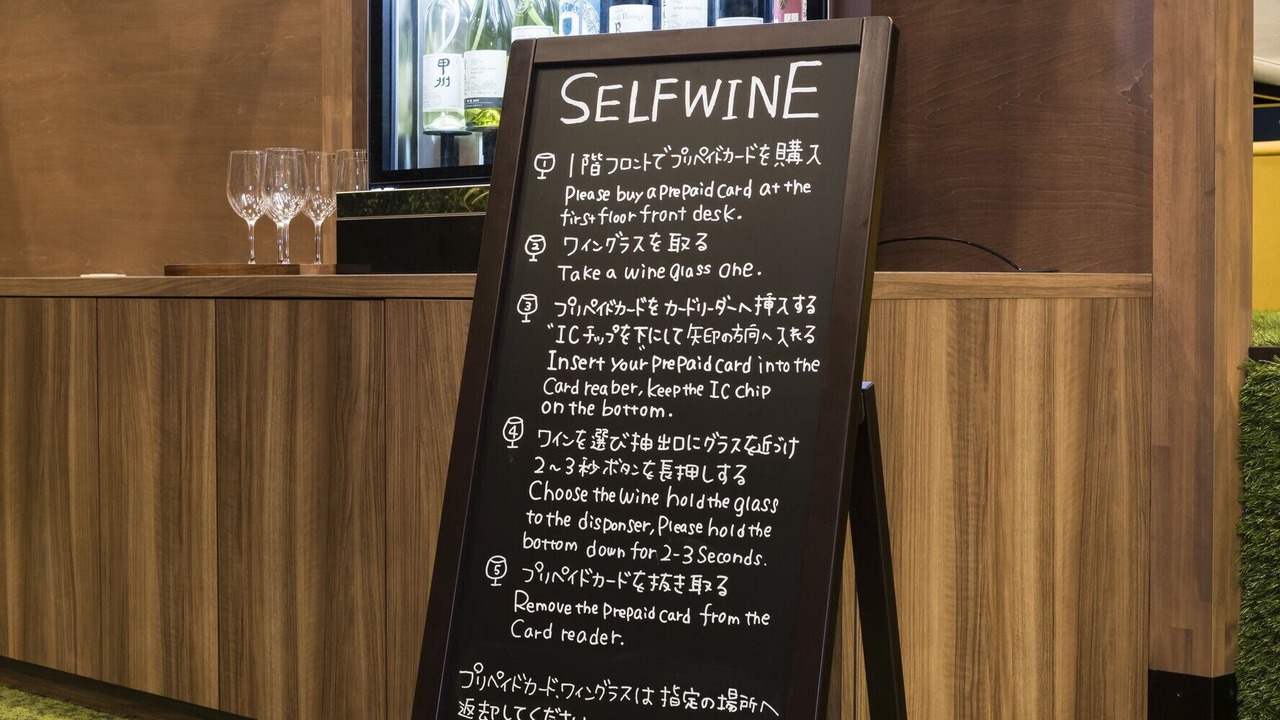 甲州
SELFWINE
① 1階フロントでプリペイドカードを購入
Please buy a prepaid card at the
first floor front desk.
② ワイングラスを取る
Take a wine glass one.
③ プリペイドカードをカードリーダーへ挿入する
"ICチップを下にして矢印の方向へ入れる
Insert your prepaid card into the
Card reaber, keep the IC chip
on the bottom.
④ ワインを選び抽出口にグラスを近づけ
2〜3秒ボタンを長押しする
Choose the wine hold the glass
to the disponser, Please hold the
bottom down for 2-3 Seconds.
⑤ プリペイドカードを抜き取る
Remove the prepaid card from the
Card reader.
プリペイドカード、ワイングラスは指定の場所へ
返却してください